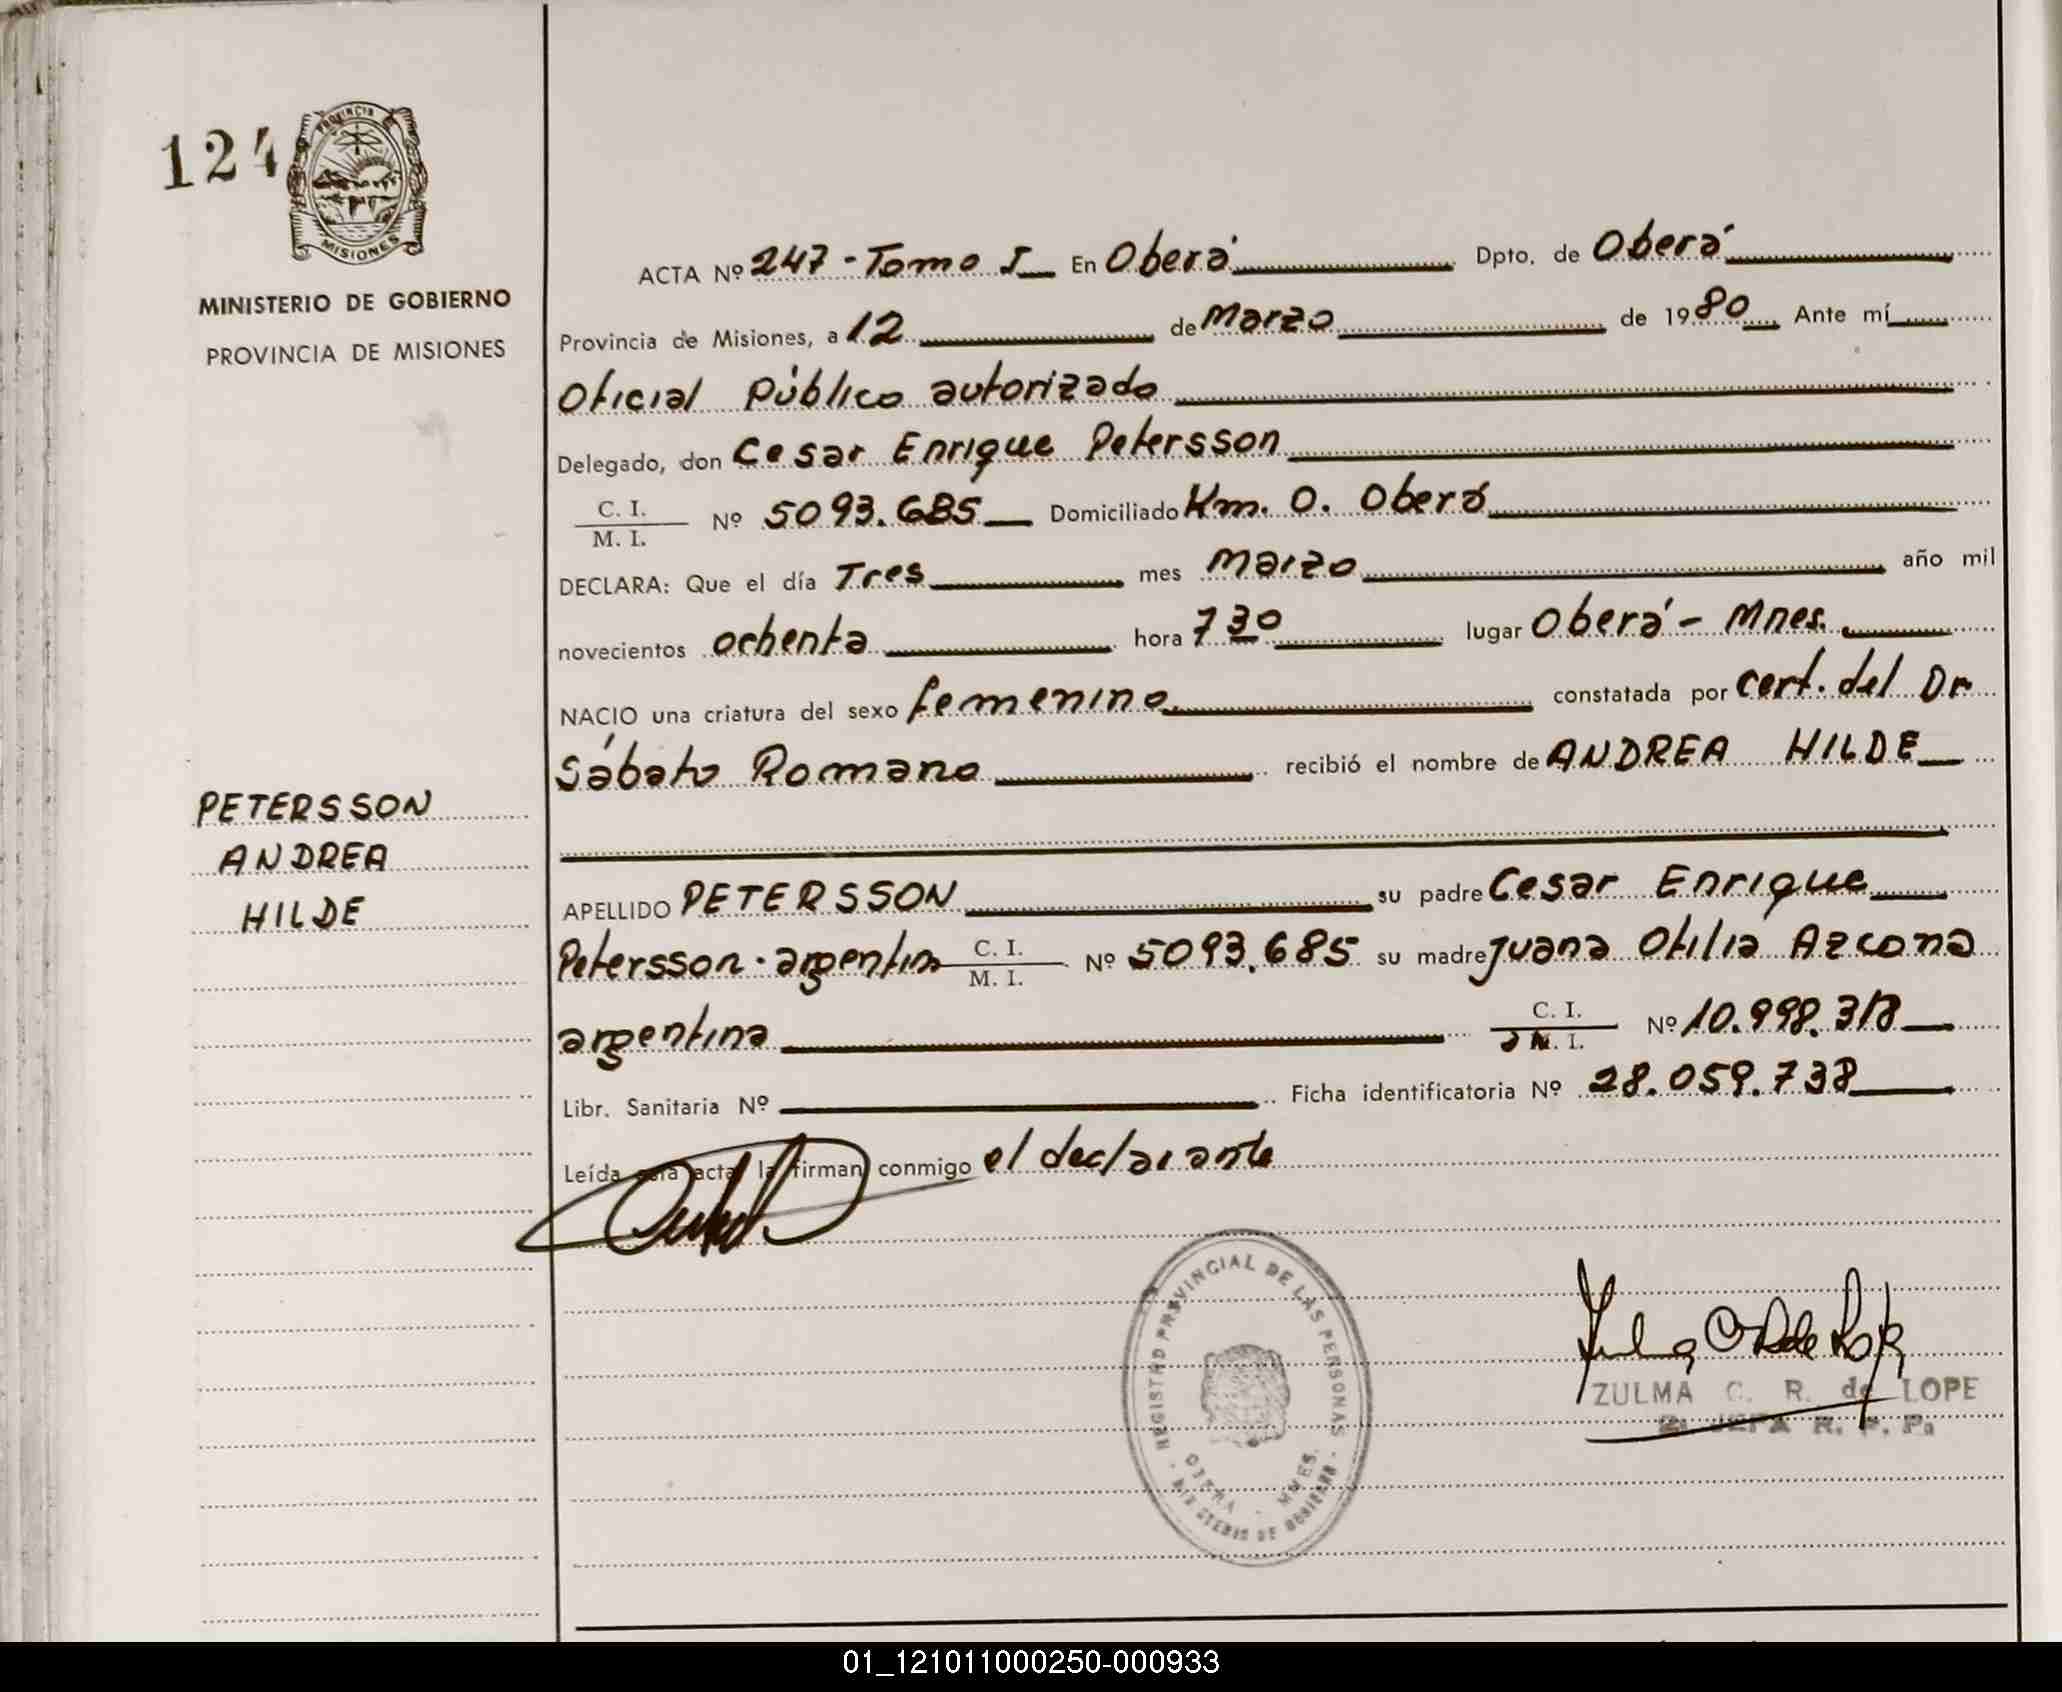 124
PROVINCIA
MISIONES
MINISTERIO DE GOBIERNO
PROVINCIA DE MISIONES
PETERSSON
ANDREA
HILDE
ACTA Nº 247 - Tomo I En Oberá Dpto. de Oberá
Provincia de Misiones, a 12 de Marzo de 1980 Ante mí
Oficial Público autorizado
Delegado, don Cesar Enrique Petersson
C. I.
M. I. Nº 5093.685 Domiciliado Km. 0. Oberá
DECLARA: Que el día Tres mes Marzo año mil
novecientos ochenta hora 730 lugar Oberá - Mnes.
NACIO una criatura del sexo femenino constatada por cert. del Dr
Sábato Romano recibió el nombre de ANDREA HILDE
APELLIDO PETERSSON su padre Cesar Enrique
Petersson - argentino C. I. M. I. Nº 5093.685 su madre Juana Otilia Azcona
argentina C. I. M. I. Nº 10.998.318
Libr. Sanitaria Nº Ficha identificatoria Nº 28.059.738
Leída esta acta la firman conmigo el declarante
REGISTRO PROVINCIAL DE LAS PERSONAS
OBERA - MNES.
MINISTERIO DE GOBIERNO
ZULMA C. R. de LOPE
2. JEFA R. P. P.
01_121011000250-000933